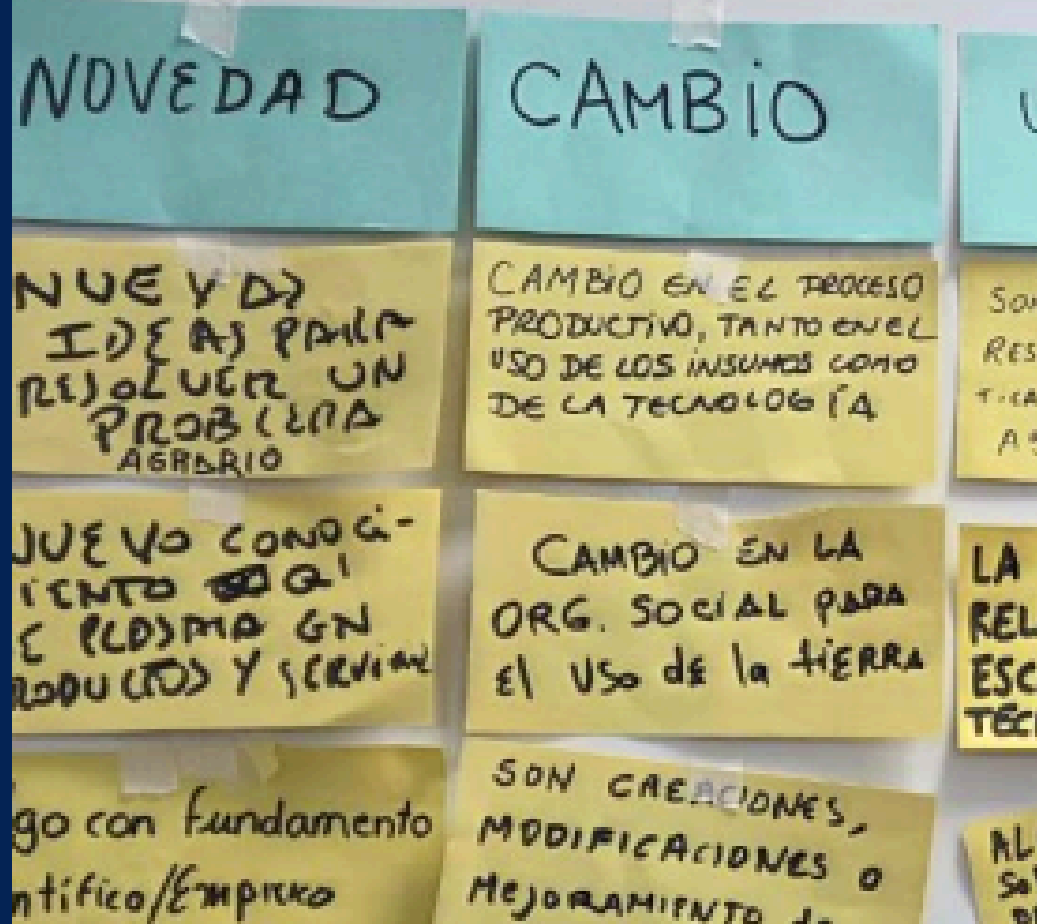 NOVEDAD
NUEVAS
IDEAS PARA
RESOLVER UN
PROBLEMA
AGRARIO
NUEVO CONOCI-
MIENTO
PLASMA EN
PRODUCTOS Y SERVICIOS
go con fundamento
ntifico/Empirico
CAMBIO
CAMBIO EN EL PROCESO
PRODUCTIVO, TANTO EN EL
USO DE LOS INSUMOS COMO
DE LA TECNOLOGÍA
CAMBIO EN LA
ORG. SOCIAL PARA
El USo de la tiERRA
SON CREACIONES,
MODIFICACIONES o
MEJORAMIENTO de
SON
RES
TICA
LA
REL
ESC
TEC
AL